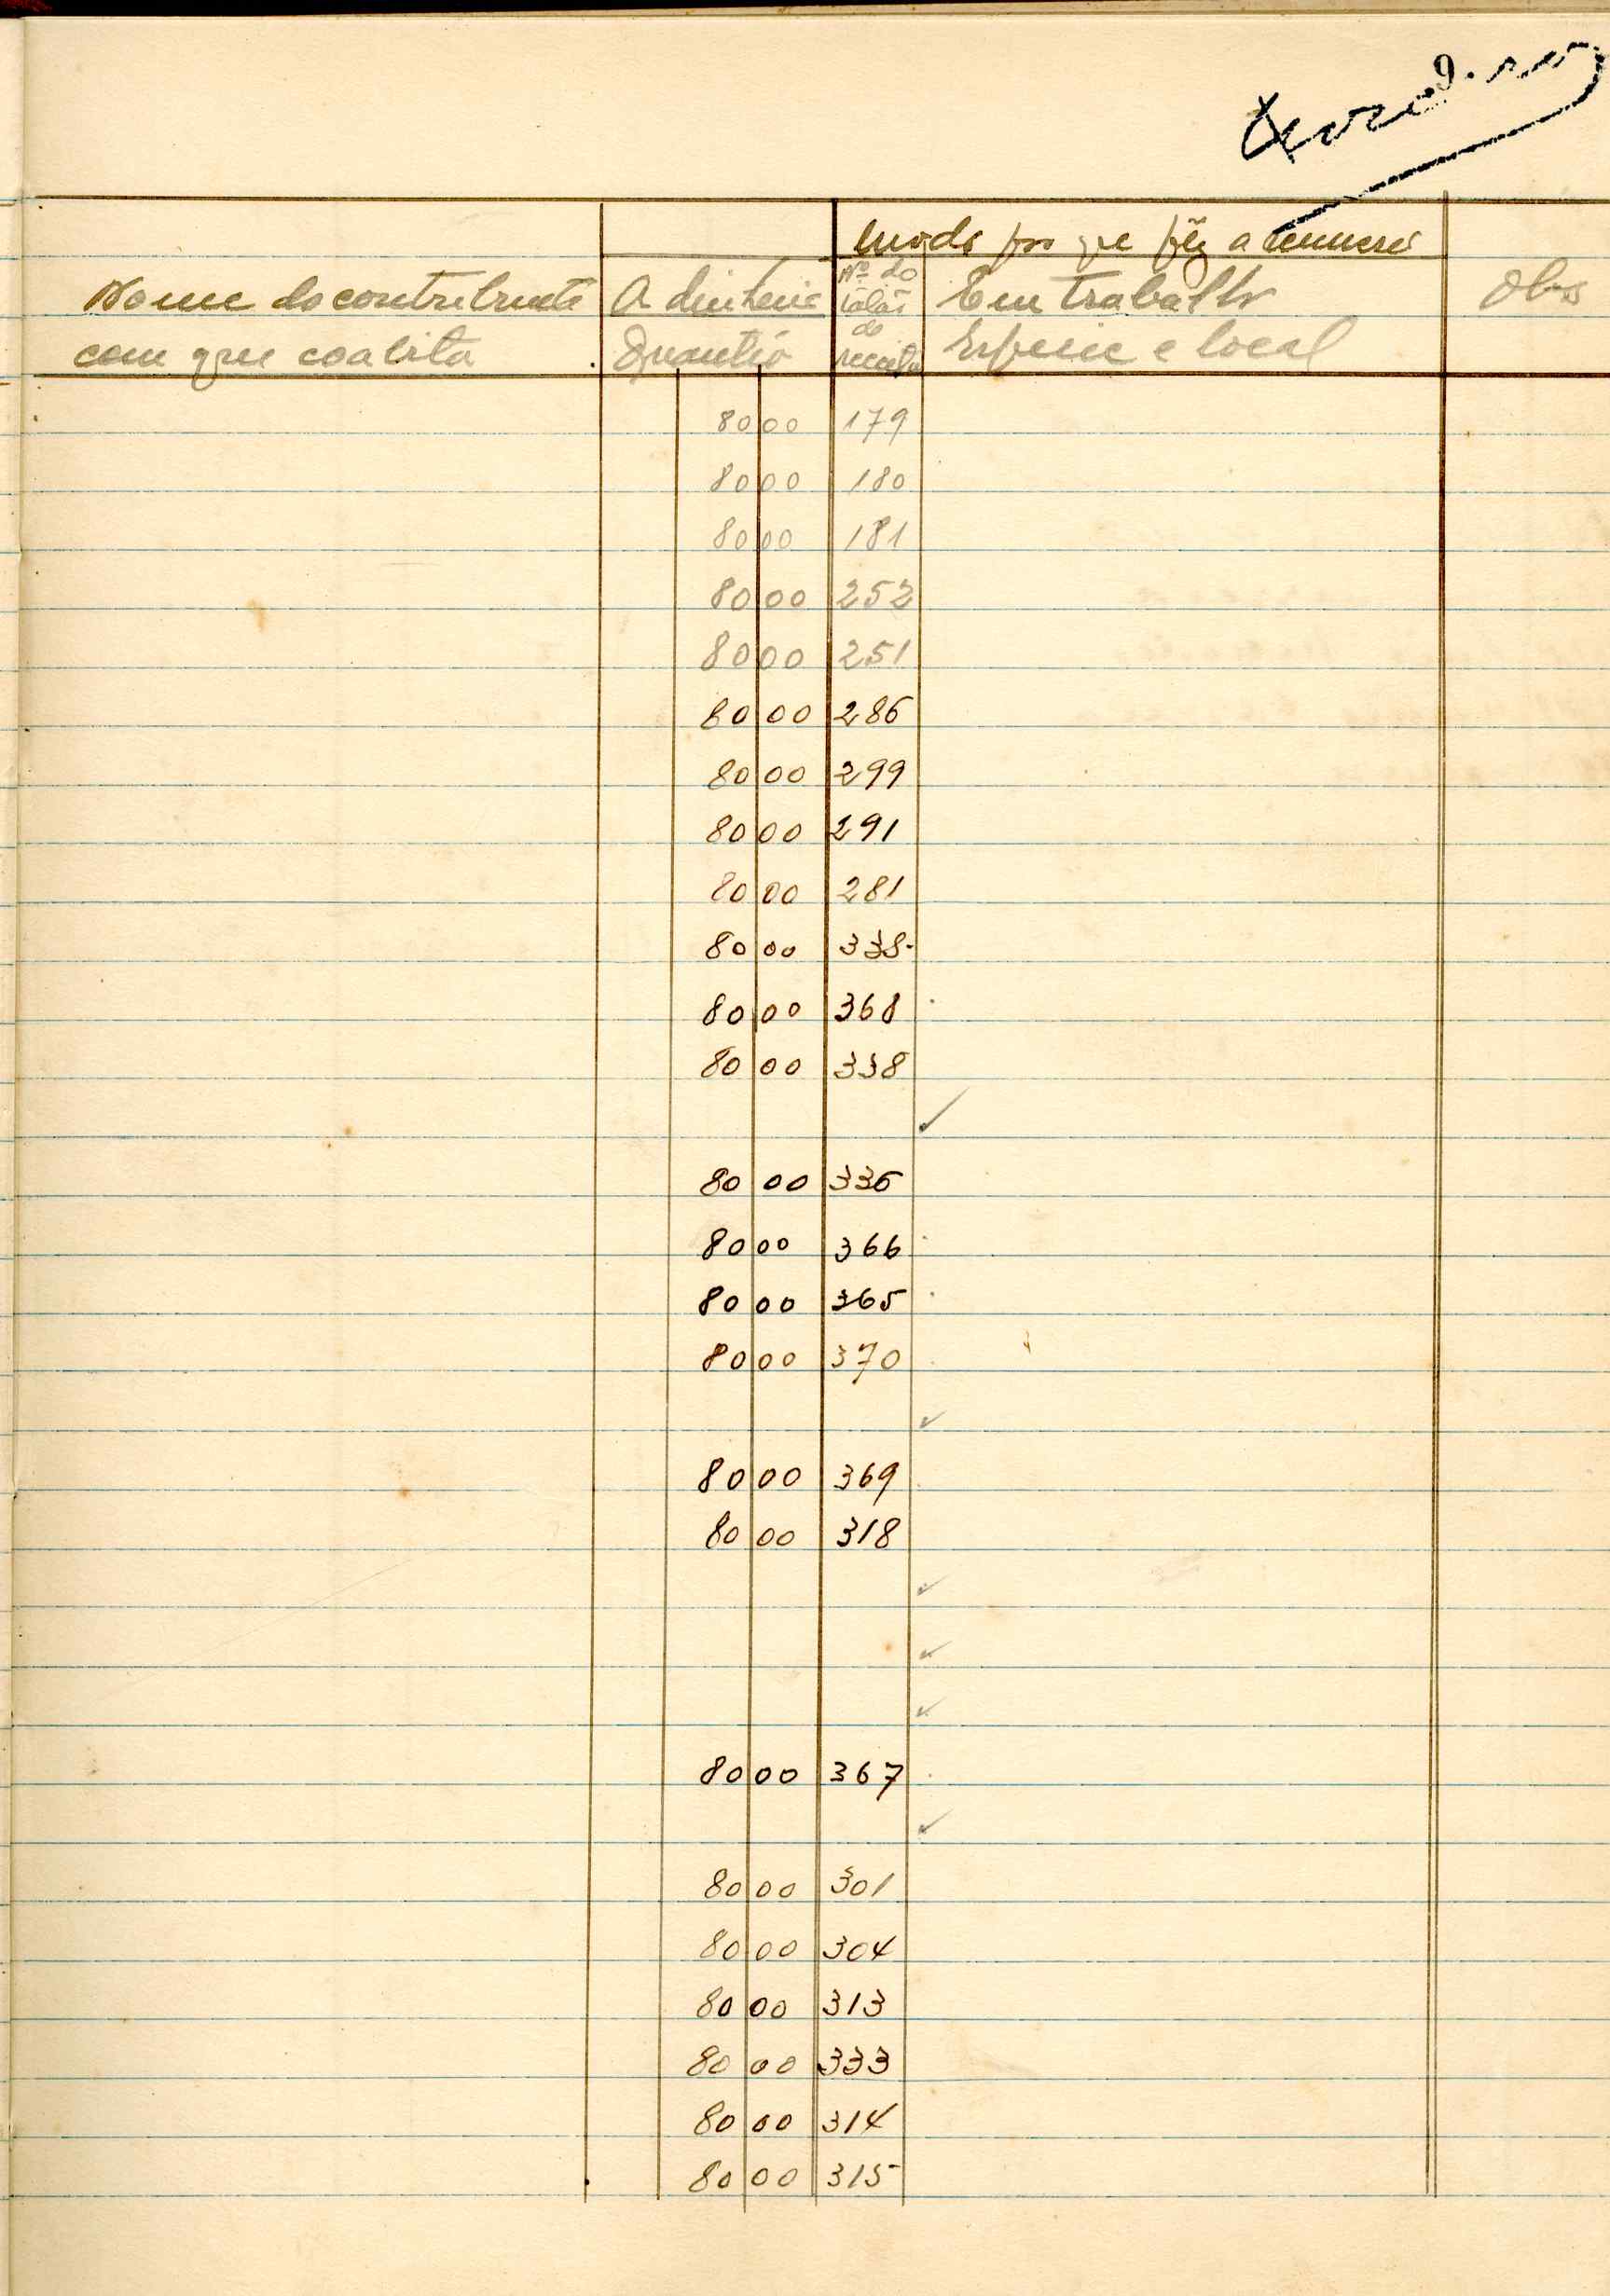 9
modo por que fêz a remissão
Nome do contribuinte A dinheiro Nº do talão de receita Em trabalho Obs
com que coabita Quantia Espécie e local
80 00 179
80 00 180
80 00 181
80 00 252
80 00 251
80 00 286
80 00 299
80 00 291
80 00 281
80 00 338
80 00 368
80 00 338
✓
80 00 336
80 00 366
80 00 365
80 00 370
✓
80 00 369
80 00 318
✓
✓
✓
80 00 367
✓
80 00 301
80 00 304
80 00 313
80 00 333
80 00 314
80 00 315